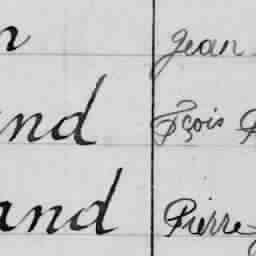 n Jean
and Fçois
and Pierre